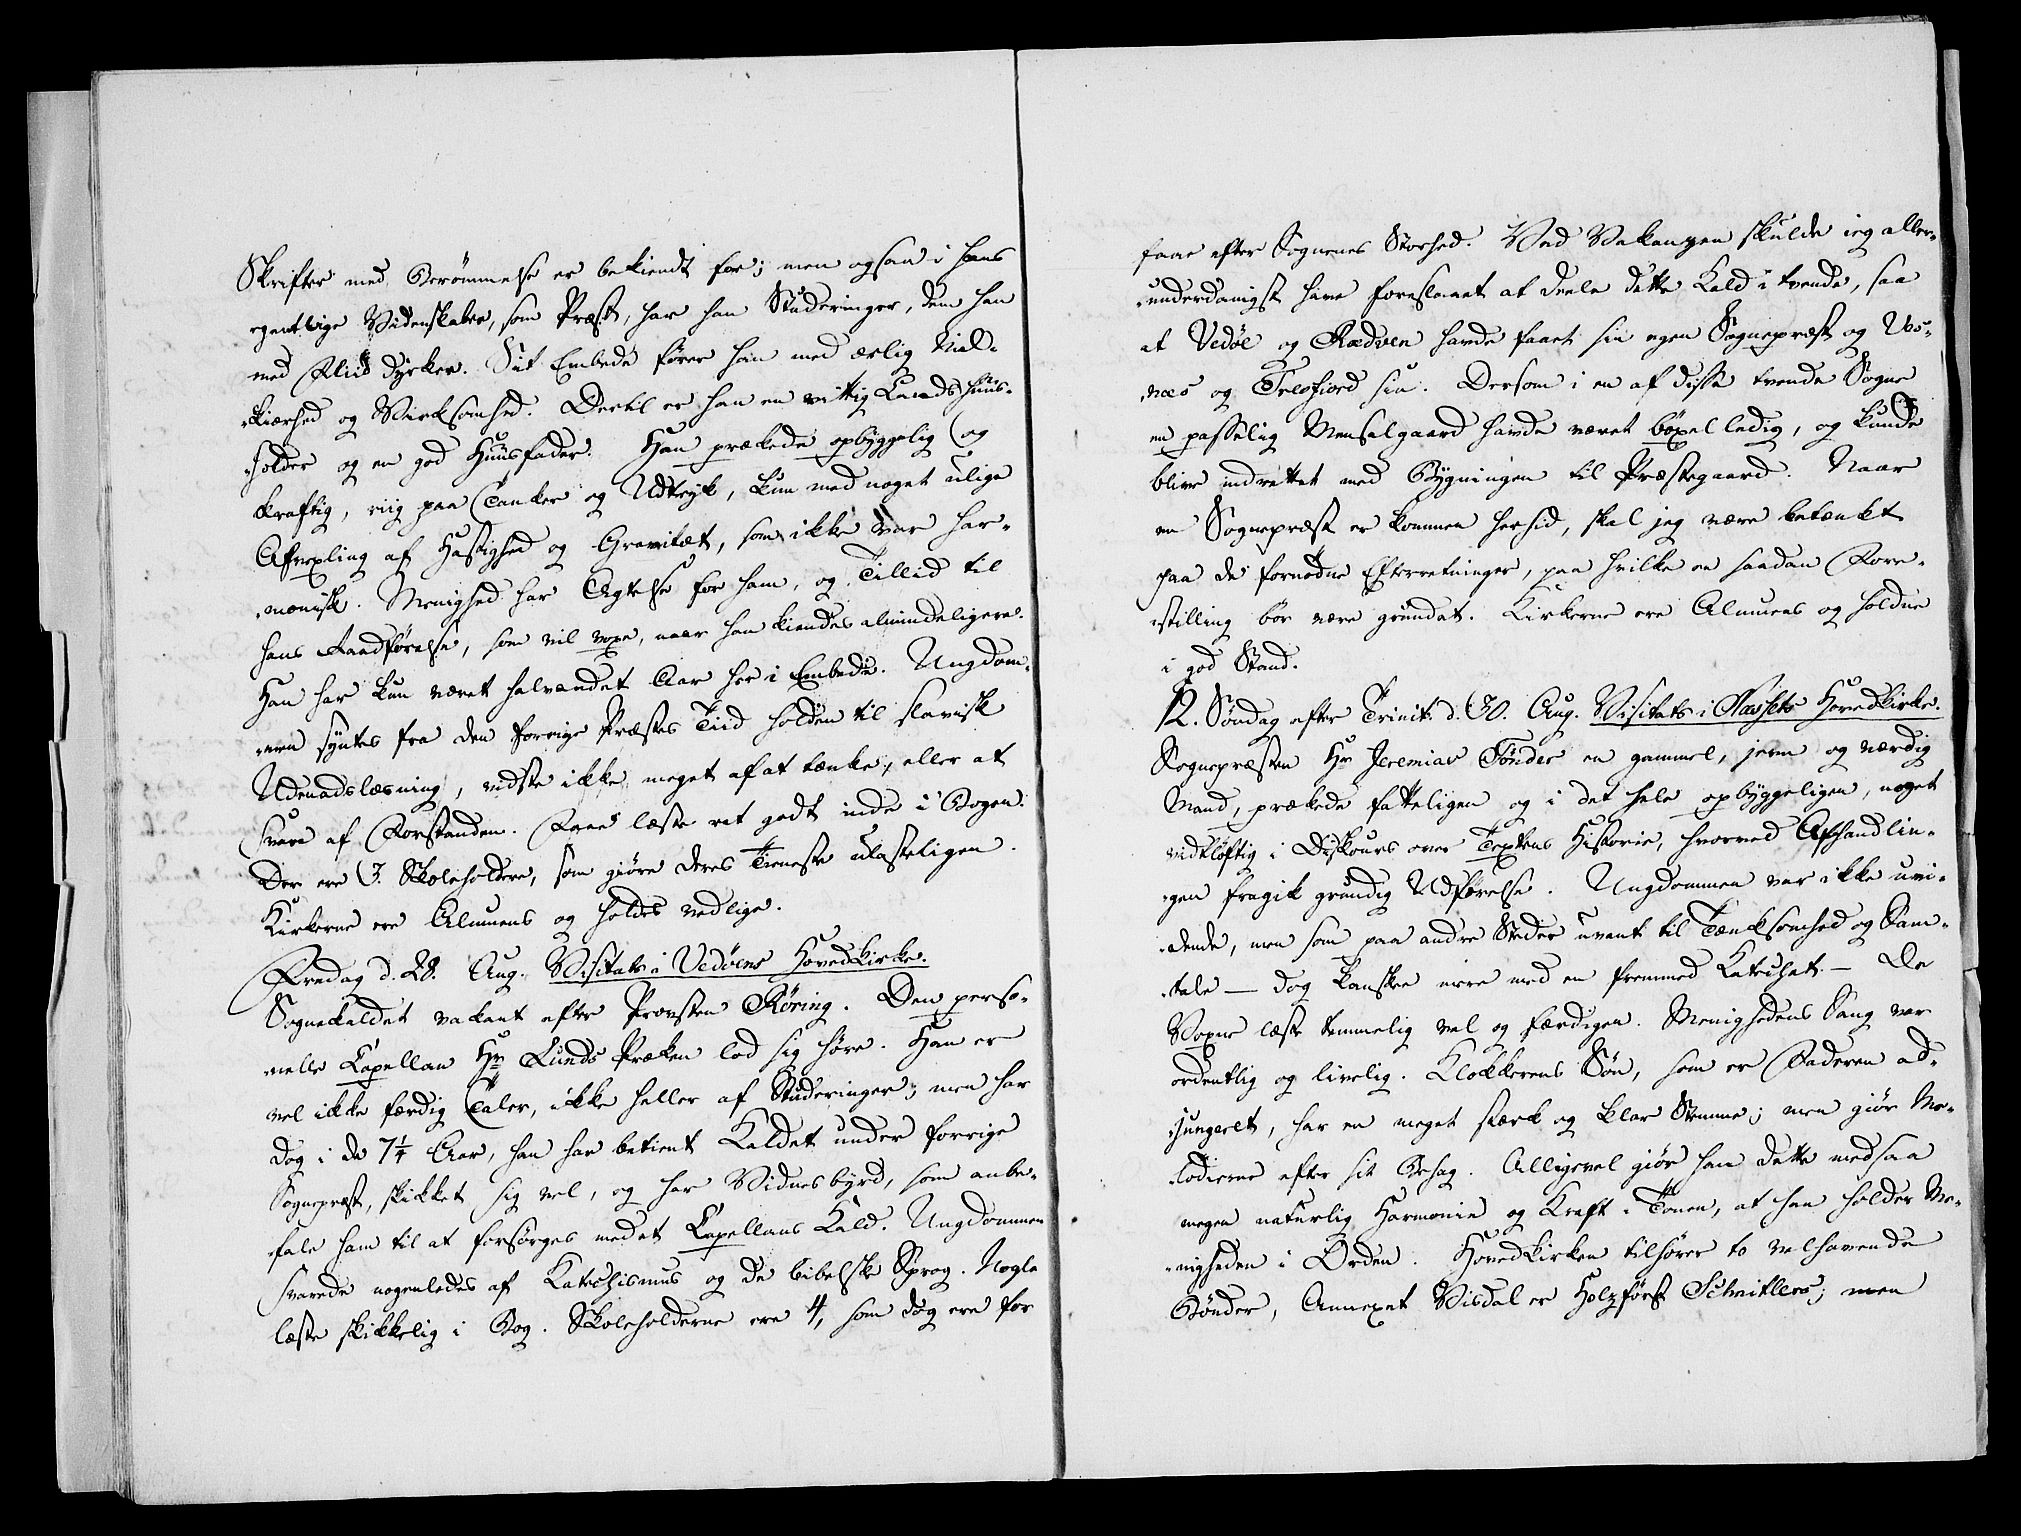 Skrifter med Berömmelse er bekiendt for; men ogsaa i hans
egentlige Videnskaber, som Præst, har han Studeringer, dem han
med Fliid dyrker. Sit Embede fører han med ærlig Nid-
kiærhed og Virksomhed. Dertil er han en vittig Landshuus-
holder og en god Huusfader. Han prækede opbyggelig og
kraftig, riig paa Tanker og Udtryk, kun med noget ulige
Afvexling af Hastighed og Gravitæt, som ikke var har-
monisk. Menighed har Agtelse for ham, og Tillid til
hans Aandförelse, som vil voxe, naar han kiendes almindeligere.
Han har kun været halvandet Aar her i Embede. Ungdom-
men syntes fra den forrige Præstes Tiid holden til slavisk
Udenadslæsning, vidste ikke meget af at tænke, eller at
svare af Forstanden. Faae læste ret godt inde i Bogen.
Der ere 3. Skoleholdere, som giöre deres Tieneste ulasteligen.
Kirkerne ere Almuens og holdes vedlige.
Fredag d. 28. Aug. Visitats i Vedöens Hovedkirke.
Sognekaldet vakant efter Provsten Röring. Den perso-
nelle Capellan Hr Lunds Præken lod sig höre. Han er
vel ikke færdig Taler, ikke heller af Studeringer; men har
dog i de 7¼ Aar, han har betient Kaldet under forrige
Sognepræst, skikket sig vel, og har Vidnesbyrd, som anbe-
fale ham til at forsörges med et Capellans Kald. Ungdommen
svarede nogenledes af Katechismus og de bibelske Sprog. Nogle
læste skikkelig i Bog. Skoleholderne ere 4, som dog ere for
faae efter Sognenes Storhed. Ved Vakanzen skulde jeg aller-
underdanigst have foreslaaet at deele dette Kald i tvende, saa
at Vedöe og Rødven havde faaet sin egen Sognepræst og Vos-
næs og Tresfiord sin. Dersom i en af disse tvende Sogne
en passelig Mensalgaard havde været böxel ledig, og kunde
blive indrettet med Bygningen til Præstegaard. Naar
en Sognepræst er kommen hersid, skal jeg være betænkt
paa de fornødne Efterretninger, paa hvilke en saadan Fore-
stilling bör være grundet. Kirkerne ere Almuens og holdne
i god Stand.
12. Söndag efter Trinit. d. 30. Aug. Visitats i Næssets Hovedkirke.
Sognepræsten Hr Jeremias Tönder en gammel, jevn og værdig
Mand, prækede fatteligen og i det hele opbyggeligen, noget
vidtløftig i Diskours over Textens Historie, hvorved Afhandlin-
gen fragik grundig Udførelse. Ungdommen var ikke uvi-
dende, men som paa andre Steder uvant til Tænksomhed og Sam-
tale — dog kanskee mere med en fremmed Katechet. — De
Voxne læste temmelig vel og færdigen. Menighedens Sang var
ordentlig og livelig. Klokkerens Sön, som er Faderen ad-
jungeret, har en meget stærk og klar Stemme; men giör Me-
lodierne efter sit Behag. Alligevel giör han dette med saa
megen naturlig Harmonie og Kraft i Tonen, at han holder Me-
nigheden i Orden. Hovedkirken tilhører to velhavende
Bönder, Annexet Visdal er Holzförst Schnitlers; men